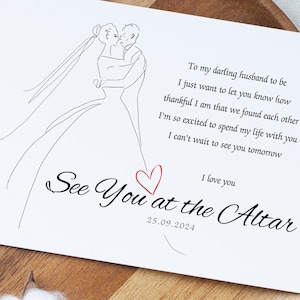 To my darling husband to be
I just want to let you know how
thankful I am that we found each other
I'm so excited to spend my life with you
I can't wait to see you tomorrow
I love you
See You at the Altar
25.09.2024